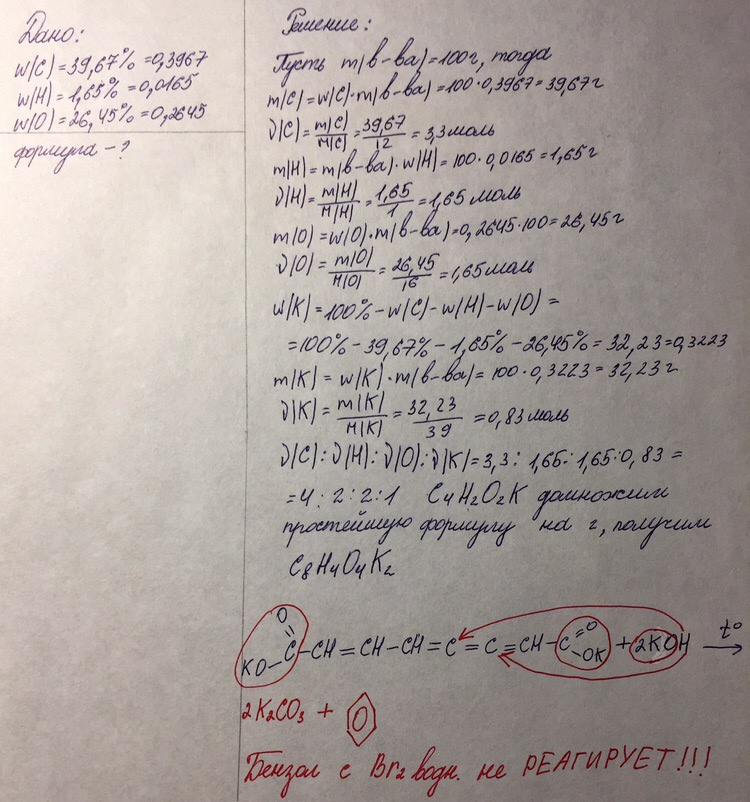 Дано:
w(C) = 39,67% = 0,3967
w(H) = 1,65% = 0,0165
w(O) = 26,45% = 0,2645
формула - ?
Решение:
Пусть m(в-ва) = 100г, тогда
m(C) = w(C)·m(в-ва) = 100·0,3967 = 39,67г
ν(C) = m(C)/M(C) = 39,67/12 = 3,3 моль
m(H) = m(в-ва)·w(H) = 100·0,0165 = 1,65г
ν(H) = m(H)/M(H) = 1,65/1 = 1,65 моль
m(O) = w(O)·m(в-ва) = 0,2645·100 = 26,45г
ν(O) = m(O)/M(O) = 26,45/16 = 1,65 моль
w(K) = 100% - w(C) - w(H) - w(O) =
= 100% - 39,67% - 1,65% - 26,45% = 32,23 = 0,3223
m(K) = w(K)·m(в-ва) = 100·0,3223 = 32,23г
ν(K) = m(K)/M(K) = 32,23/39 = 0,83 моль
ν(C):ν(H):ν(O):ν(K) = 3,3:1,65:1,65:0,83 =
= 4:2:2:1 C4H2O2K домножим
простейшую формулу на 2, получим
C8H4O4K2
KO-C(=O)-CH=CH-CH=C=C=CH-C(=O)-OK + 2KOH t° →
2K2CO3 +
Бензол с Br2 водн. не РЕАГИРУЕТ!!!